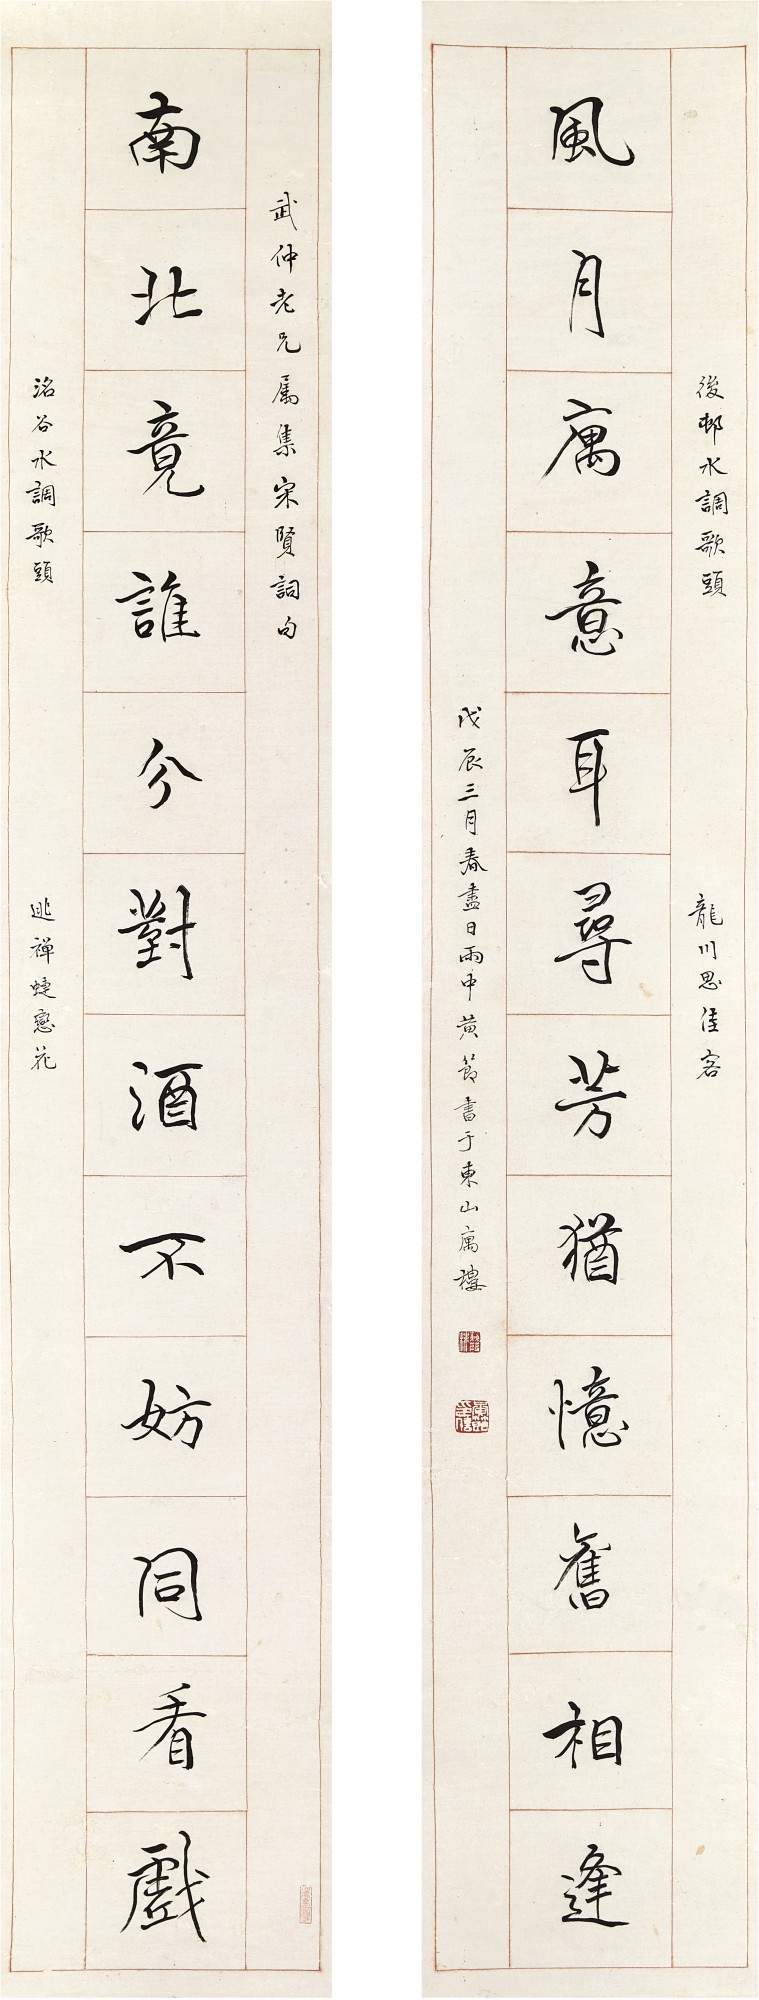 後邨水調歌頭
龍川思佳客
風月庽意耳尋芳猶憶舊相逢
戊辰三月春盡日雨中黃節書于東山庽樓
武仲老兄属集宋賢詞句
南北竟誰分對酒不妨同看戲
洺谷水調歌頭
逃禪蜨戀花